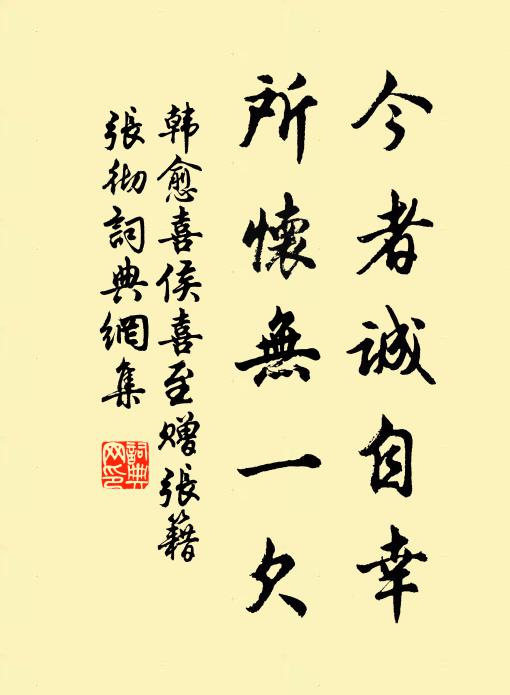 今者誠自幸
所懷無一欠
韩愈喜侯喜至赠張籍
張彻詞典網集
詞典
网印